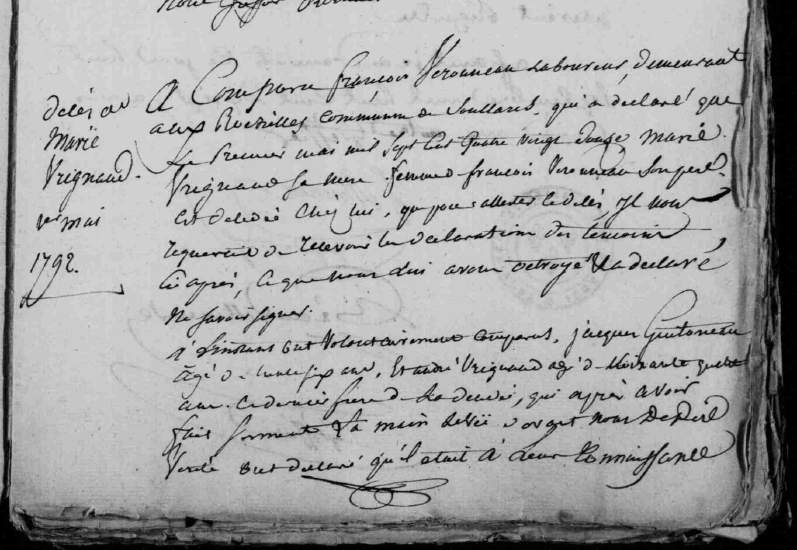 décès de
Marie
Vrignaud.
1er mai
1792.
A Comparu françois Veronneau Laboureur, demeurant
aux Rochelles Commune de Soullans, qui a declaré que
le Premier mai mil Sept Cent Quatre vingt douze, Marie
Vrignaud Sa mere femme francois Veronneau Son pere
Est decedé Chez lui, que pour attester le decés, il nous
requerrait de recevoir la declaration des temoins
Ci après, Ce que nous lui avons octroyé & a declaré
Ne Savoir Signer.
à L'instant ont Volontairement Comparus, jacques
agé de trente six ans, Et andré Vrignaud agé de Soixante quatre
ans Ce dernier frere de La decedé, qui après avoir
fait Serment La main Levée devant nous De Dire
Verité ont declaré qu'il etait à Leur Connaissance